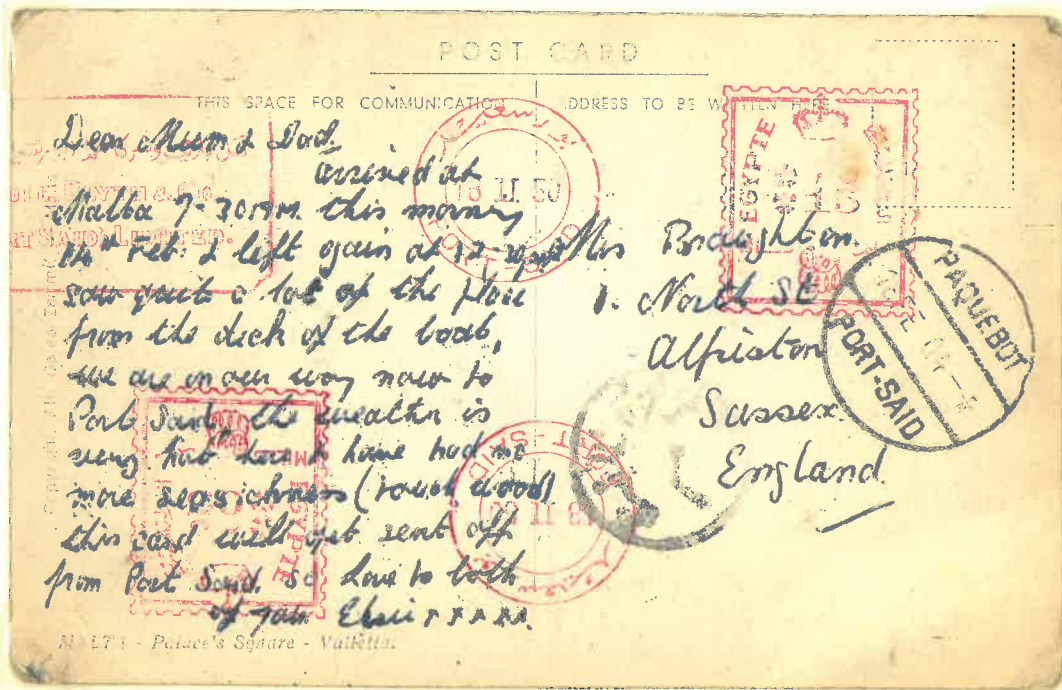 POST CARD
THIS SPACE FOR COMMUNICATION
ADDRESS TO BE WRITTEN HERE
Dear Mum & Dad.
arrived at
Malta 7-30 A.M. this morning
14th Feb. & left gain at 12-30 pm
saw quite a lot of the place
from the deck of the boat,
we are on our way now to
Port Said, the weather is
very hot here & have had no
more seasickness (touch wood)
this card will get sent off
from Port Said. so love to both
of you. Elsie x x x x x.
Mrs Broughton.
1. North St
Alfriston
Sussex
England.
EGYPTE
18
& CO.
PORT SAID) LIMITED.
16 II 50
PORT-SAID
PAQUEBOT
PORT-SAID
EGYPTE
MALTA - Palace's Square - Valletta.